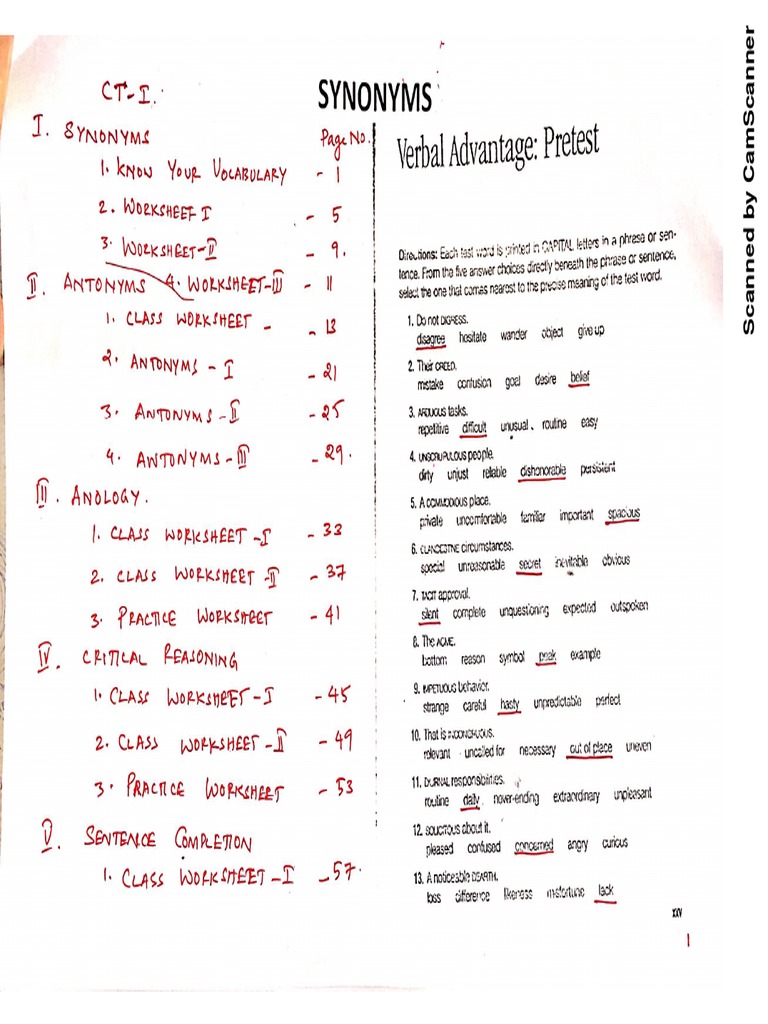 CT-I.
I. SYNONYMS Page No.
1. KNOW YOUR VOCABULARY - 1
2. WORKSHEET-I - 5
3. WORKSHEET-II - 9.
II. ANTONYMS 4. WORKSHEET-III - 11
1. CLASS WORKSHEET - - 13
2. ANTONYMS - I - 21
3. ANTONYMS - II - 25
4. ANTONYMS - III - 29.
III. ANOLOGY.
1. CLASS WORKSHEET -I - 33
2. CLASS WORKSHEET -II - 37
3. PRACTICE WORKSHEET - 41
IV. CRITICAL REASONING
1. CLASS WORKSHEET - I - 45
2. CLASS WORKSHEET - II - 49
3. PRACTICE WORKSHEET - 53
V. SENTENCE COMPLETION
1. CLASS WORKSHEET - I - 57.
SYNONYMS
Verbal Advantage: Pretest
Directions: Each test word is printed in CAPITAL letters in a phrase or sen-
tence. From the five answer choices directly beneath the phrase or sentence,
select the one that comes nearest to the precise meaning of the test word.
1. Do not DIGRESS.
disagree hesitate wander object give up
2. Their CREED.
mistake confusion goal desire belief
3. ARDUOUS tasks.
repetitive difficult unusual routine easy
4. UNSCRUPULOUS people.
dirty unjust reliable dishonorable persistent
5. A COMMODIOUS place.
private uncomfortable familiar important spacious
6. CLANDESTINE circumstances.
special unreasonable secret inevitable obvious
7. TACIT approval.
silent complete unquestioning expected outspoken
8. The ACME.
bottom reason symbol peak example
9. IMPETUOUS behavior.
strange careful hasty unpredictable perfect
10. That is INCONGRUOUS.
relevant uncalled for necessary out of place uneven
11. DIURNAL responsibilities.
routine daily never-ending extraordinary unpleasant
12. SOLICITOUS about it.
pleased confused concerned angry curious
13. A noticeable DEARTH.
loss difference likeness misfortune lack
xxv
1
Scanned by CamScanner